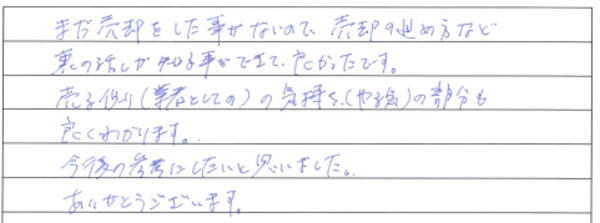 まだ売却をした事がないので、売却の進め方など
裏の話しが知る事ができて、良かったです。
売る側(業者としての)の気持ち、(やる気)の部分も
良くわかります。
今後の参考にしたいと思いました。
ありがとうございます。